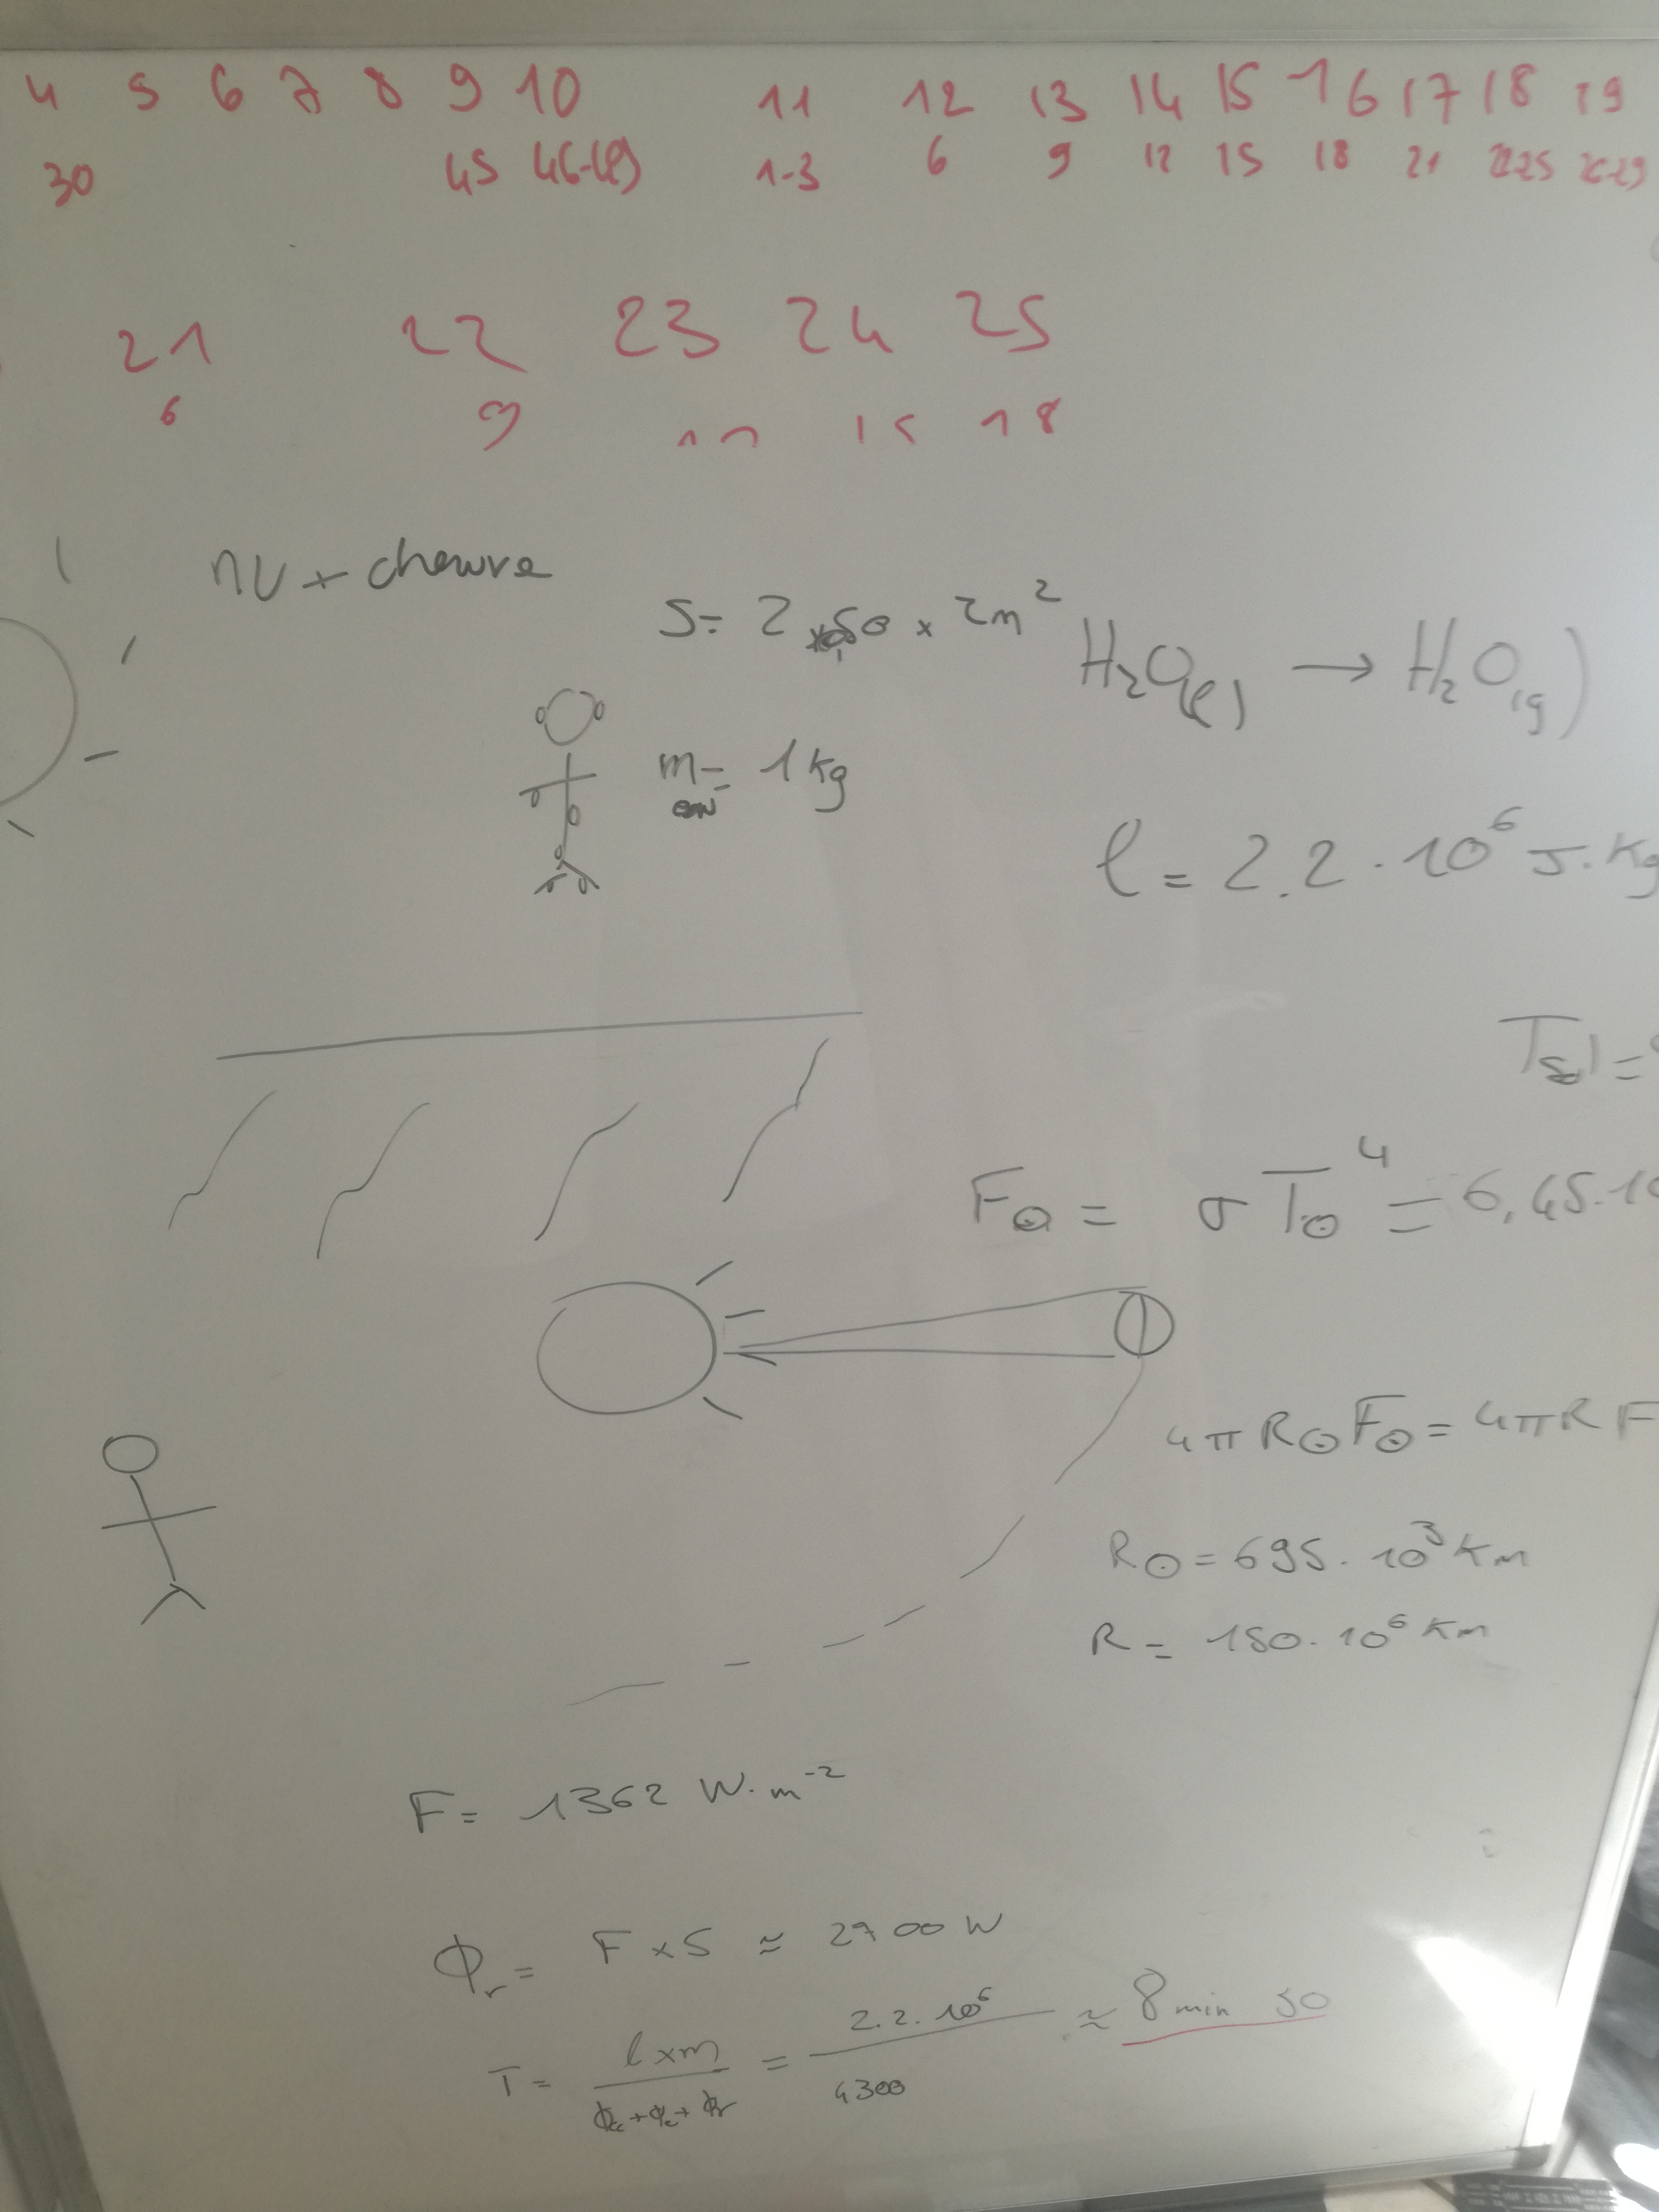 4 5 6 7 8 9 10 11 12 13 14 15 16 17 18 19
30 45 46-49 1-3 6 9 12 15 18 21 22-25 26-29
21 22 23 24 25
6 9 12 15 18
nu + chauve
S = 2 × 0,50 × 2m²
H₂O(l) → H₂O(g)
m eau = 1 kg
l = 2.2 · 10⁶ J. Kg
Tsol =
F☉ = σ T☉⁴ = 6,45.10
4πR☉F☉ = 4πR F
R☉ = 695. 10³ Km
R = 150. 10⁶ Km
F = 1362 W. m⁻²
Φr = F × S ≈ 2700 W
T = l × m / Φcc + Φc + Φr = 2.2. 10⁶ / 4300 ≈ 8 min 30